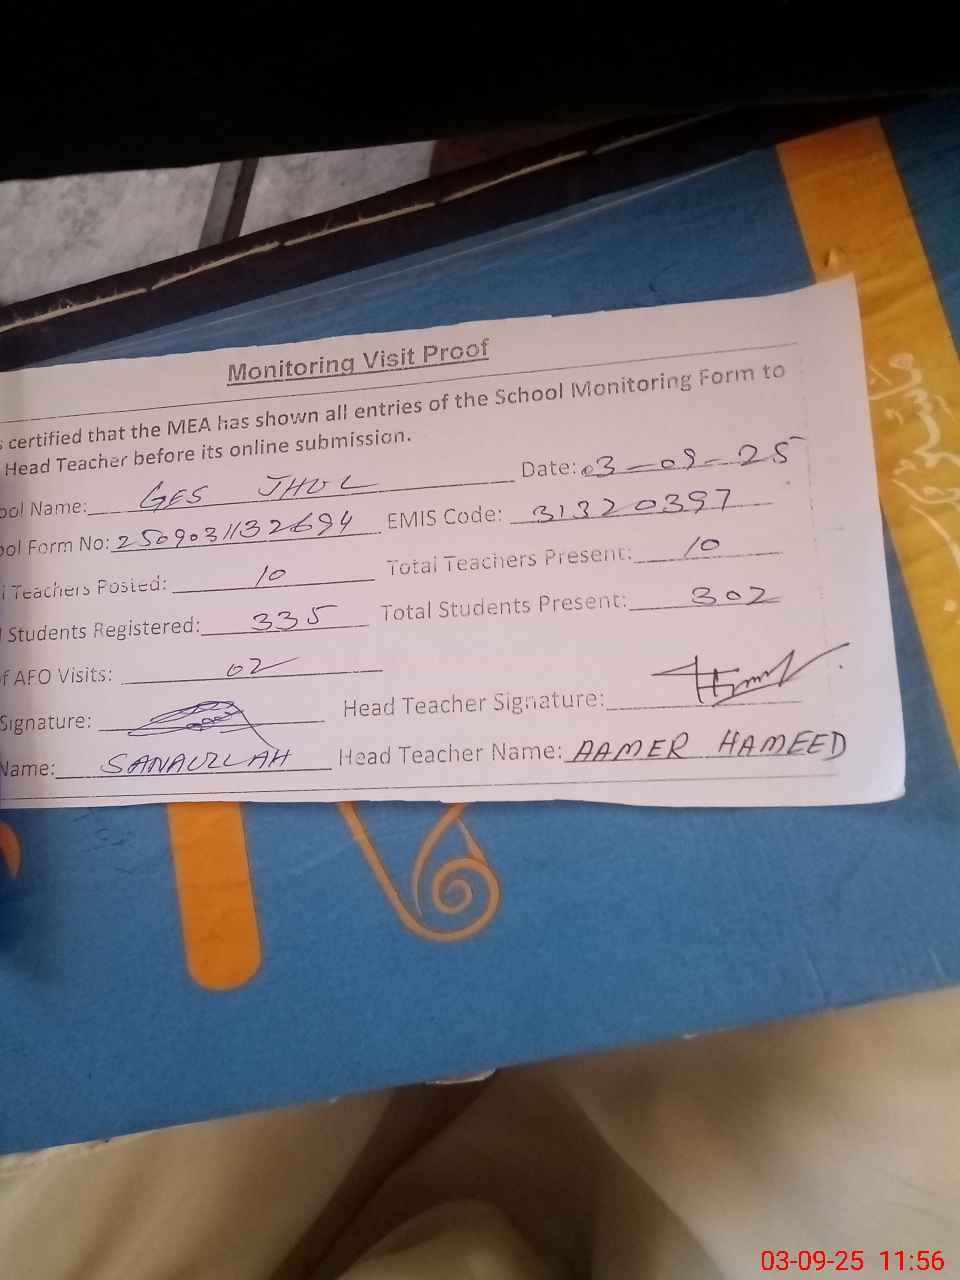 Monitoring Visit Proof
certified that the MEA has shown all entries of the School Monitoring Form to
Head Teacher before its online submission.
ool Name: GES JHOL Date: 03-09-25
ool Form No: 2509031132694 EMIS Code: 31320397
Teachers Posted: 10 Total Teachers Present: 10
Students Registered: 335 Total Students Present: 302
f AEO Visits: 02
Signature: Head Teacher Signature:
Name: SANAULLAH Head Teacher Name: AAMER HAMEED
03-09-25 11:56